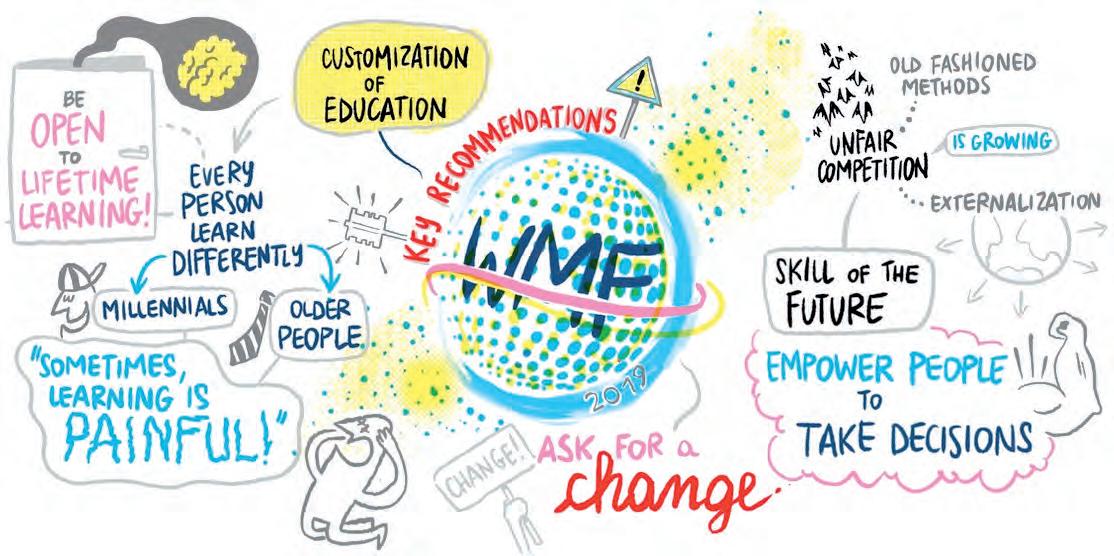 BE
OPEN
TO
LIFETIME
LEARNING!
CUSTOMIZATION
OF
EDUCATION
EVERY
PERSON
LEARN
DIFFERENTLY
MILLENNIALS
OLDER
PEOPLE
"SOMETIMES,
LEARNING IS
PAINFUL!"
KEY RECOMMENDATIONS
!
WMF
2019
CHANGE!
ASK FOR a
change.
OLD FASHIONED
METHODS
UNFAIR
COMPETITION
IS GROWING
EXTERNALIZATION
SKILL OF THE
FUTURE
EMPOWER PEOPLE
TO
TAKE DECISIONS